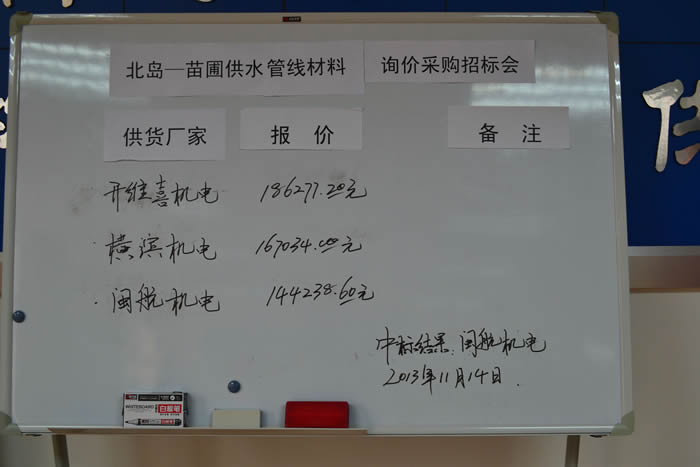 北岛—苗圃供水管线材料 询价采购招标会
供货厂家 报价 备注
开维喜机电 186277.20元
横滨机电 167034.00元
闽航机电 144238.60元
中标结果:闽航机电
2013年11月14日.
WHITEBOARD 白板笔
供